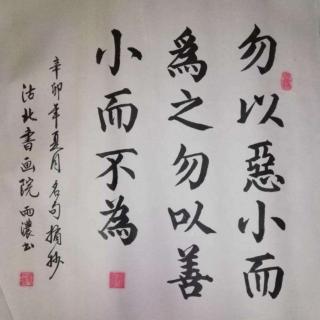 勿以惡小而
爲之勿以善
小而不為
辛卯年夏月名句摘抄
沽北書画院雨濃书